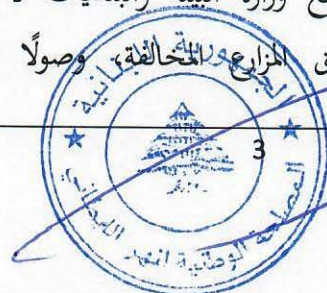 وزارة البيئة والبلديات
المزارع المخالفة، وصولًا
3
الجمهورية اللبنانية
المصلحة الوطنية لنهر الليطاني